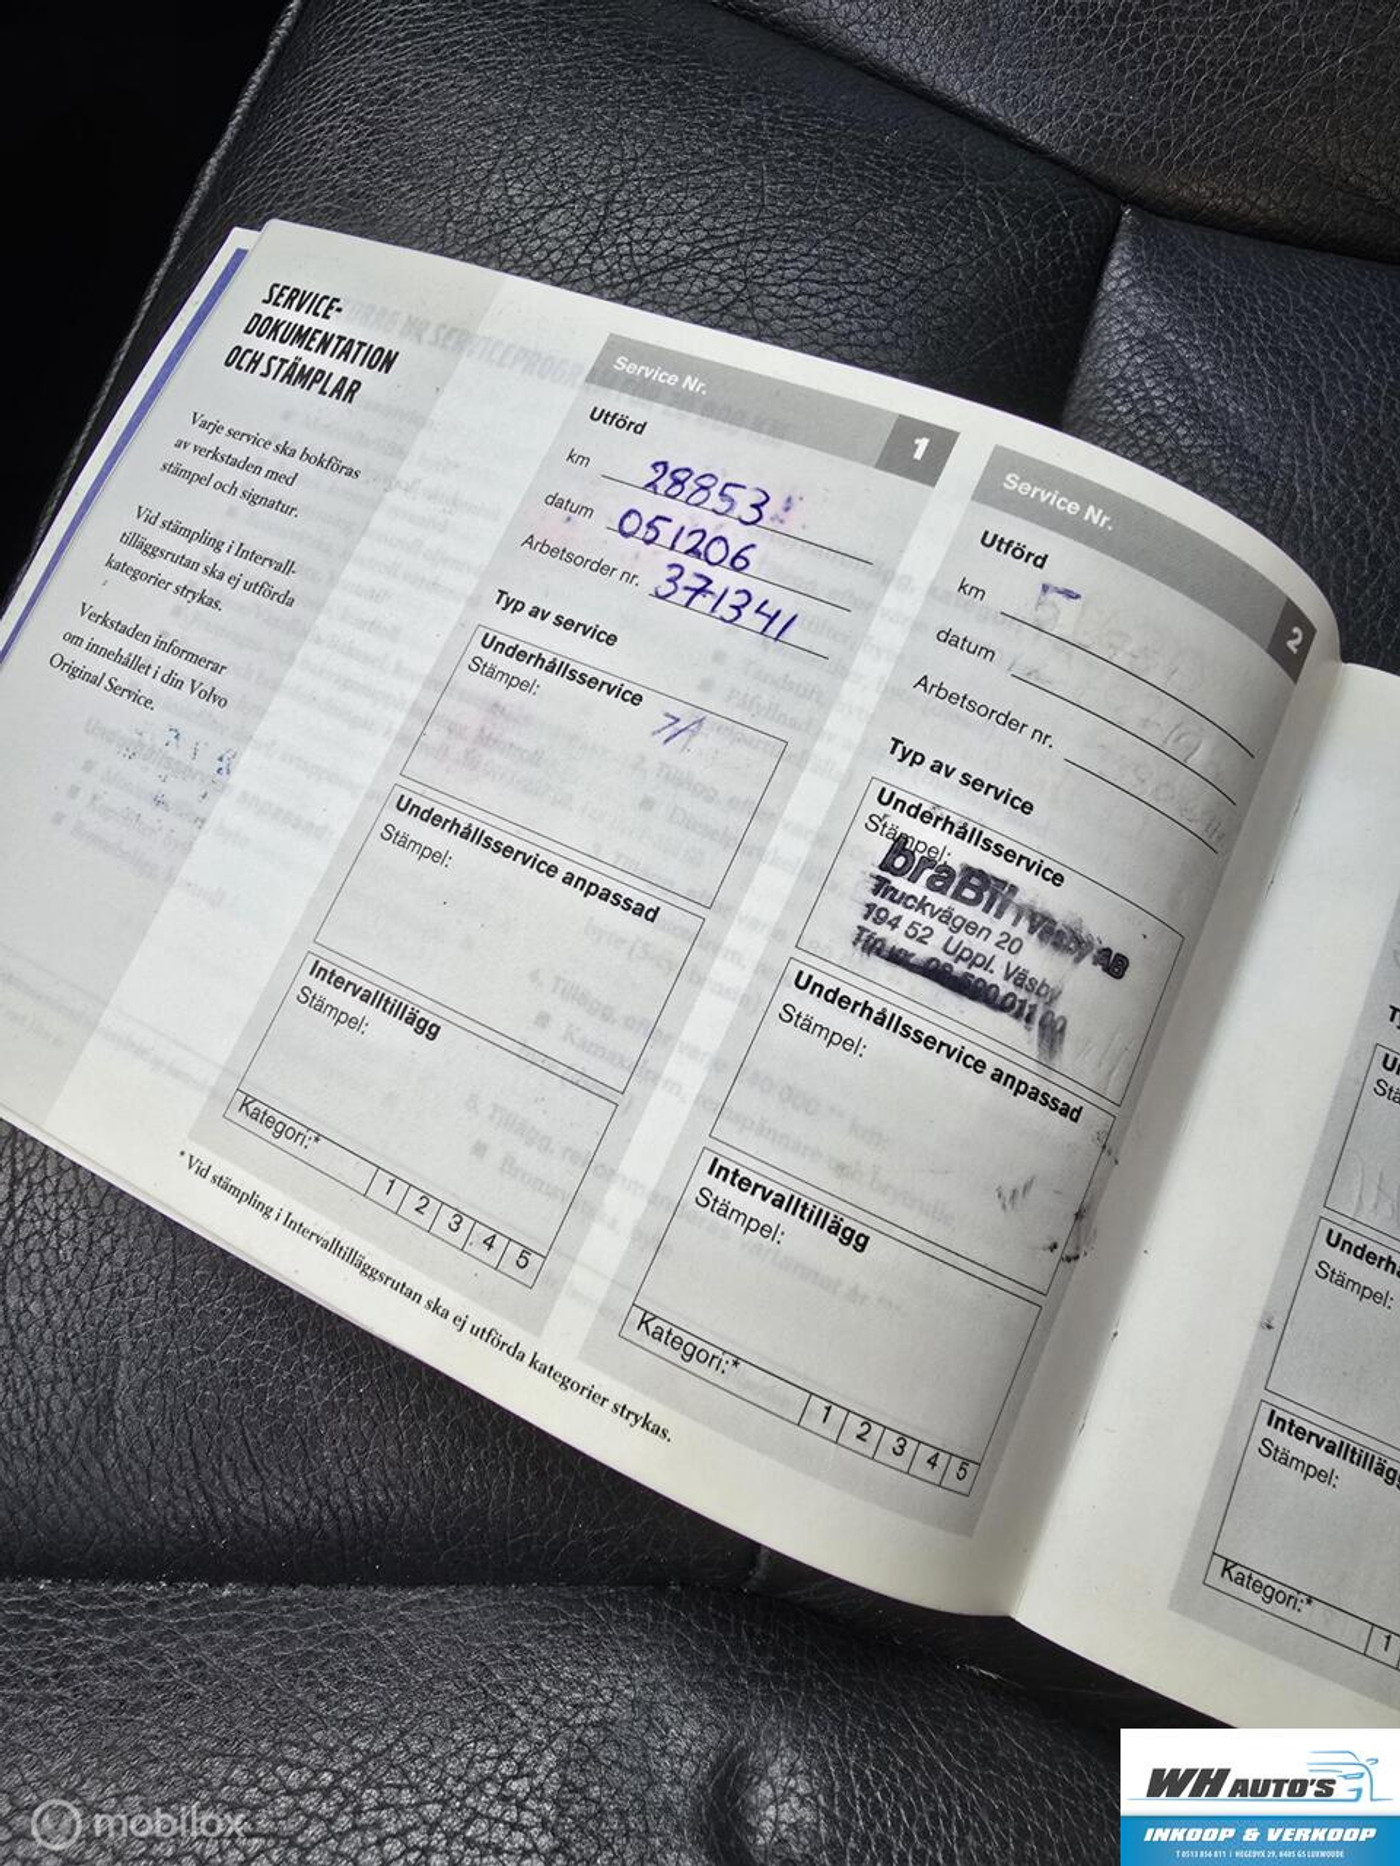 SERVICE-
DOKUMENTATION
OCH STÄMPLAR
Varje service ska bokföras
av verkstaden med
stämpel och signatur.
Vid stämpling i Intervall-
tilläggsrutan ska ej utförda
kategorier strykas.
Verkstaden informerar
om innehållet i din Volvo
Original Service.
Service Nr.
1
Utförd
km 28853
datum 051206
Arbetsorder nr. 371341
Typ av service
Underhållsservice
Stämpel:
Underhållsservice anpassad
Stämpel:
Intervalltillägg
Stämpel:
Kategori:* 1 2 3 4 5
* Vid stämpling i Intervalltilläggsrutan ska ej utförda kategorier strykas.
Service Nr.
2
Utförd
km 5
datum
Arbetsorder nr.
Typ av service
Underhållsservice
Stämpel:
braBil i Väsby AB
Truckvägen 20
194 52 Uppl. Väsby
Underhållsservice anpassad
Stämpel:
Intervalltillägg
Stämpel:
Kategori:* 1 2 3 4 5
Underh
Stämpel:
Intervalltilläg
Stämpel:
Kategori:* 1
mobilox
WH AUTO'S
INKOOP & VERKOOP
T 0513 856 811 | HEGEDYK 29, 8405 GS LUXWOUDE